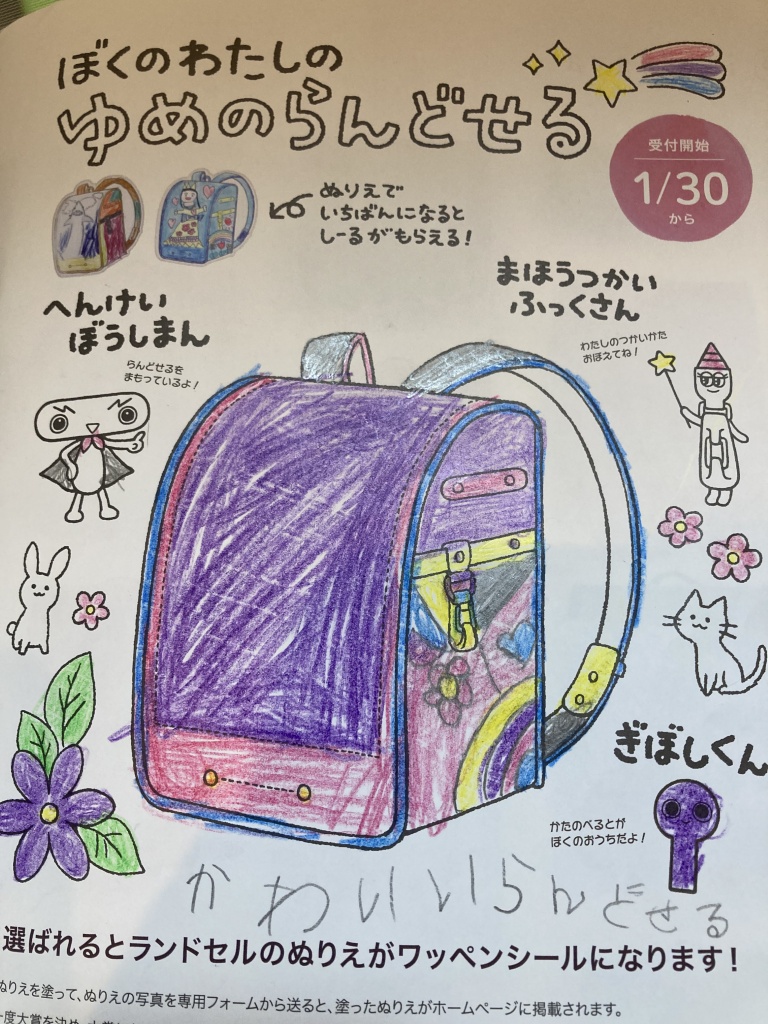 ぼくのわたしの
ゆめのらんどせる
受付開始
1/30
から
ぬりえで
いちばんになると
しーるがもらえる!
へんけい
ぼうしまん
らんどせるを
まもっているよ!
まほうつかい
ふっくさん
わたしのつかいかた
おぼえてね!
ぎぼしくん
かたのべるとが
ぼくのおうちだよ!
かわいいらんどせる
選ばれるとランドセルのぬりえがワッペンシールになります!
ぬりえを塗って、ぬりえの写真を専用フォームから送ると、塗ったぬりえがホームページに掲載されます。